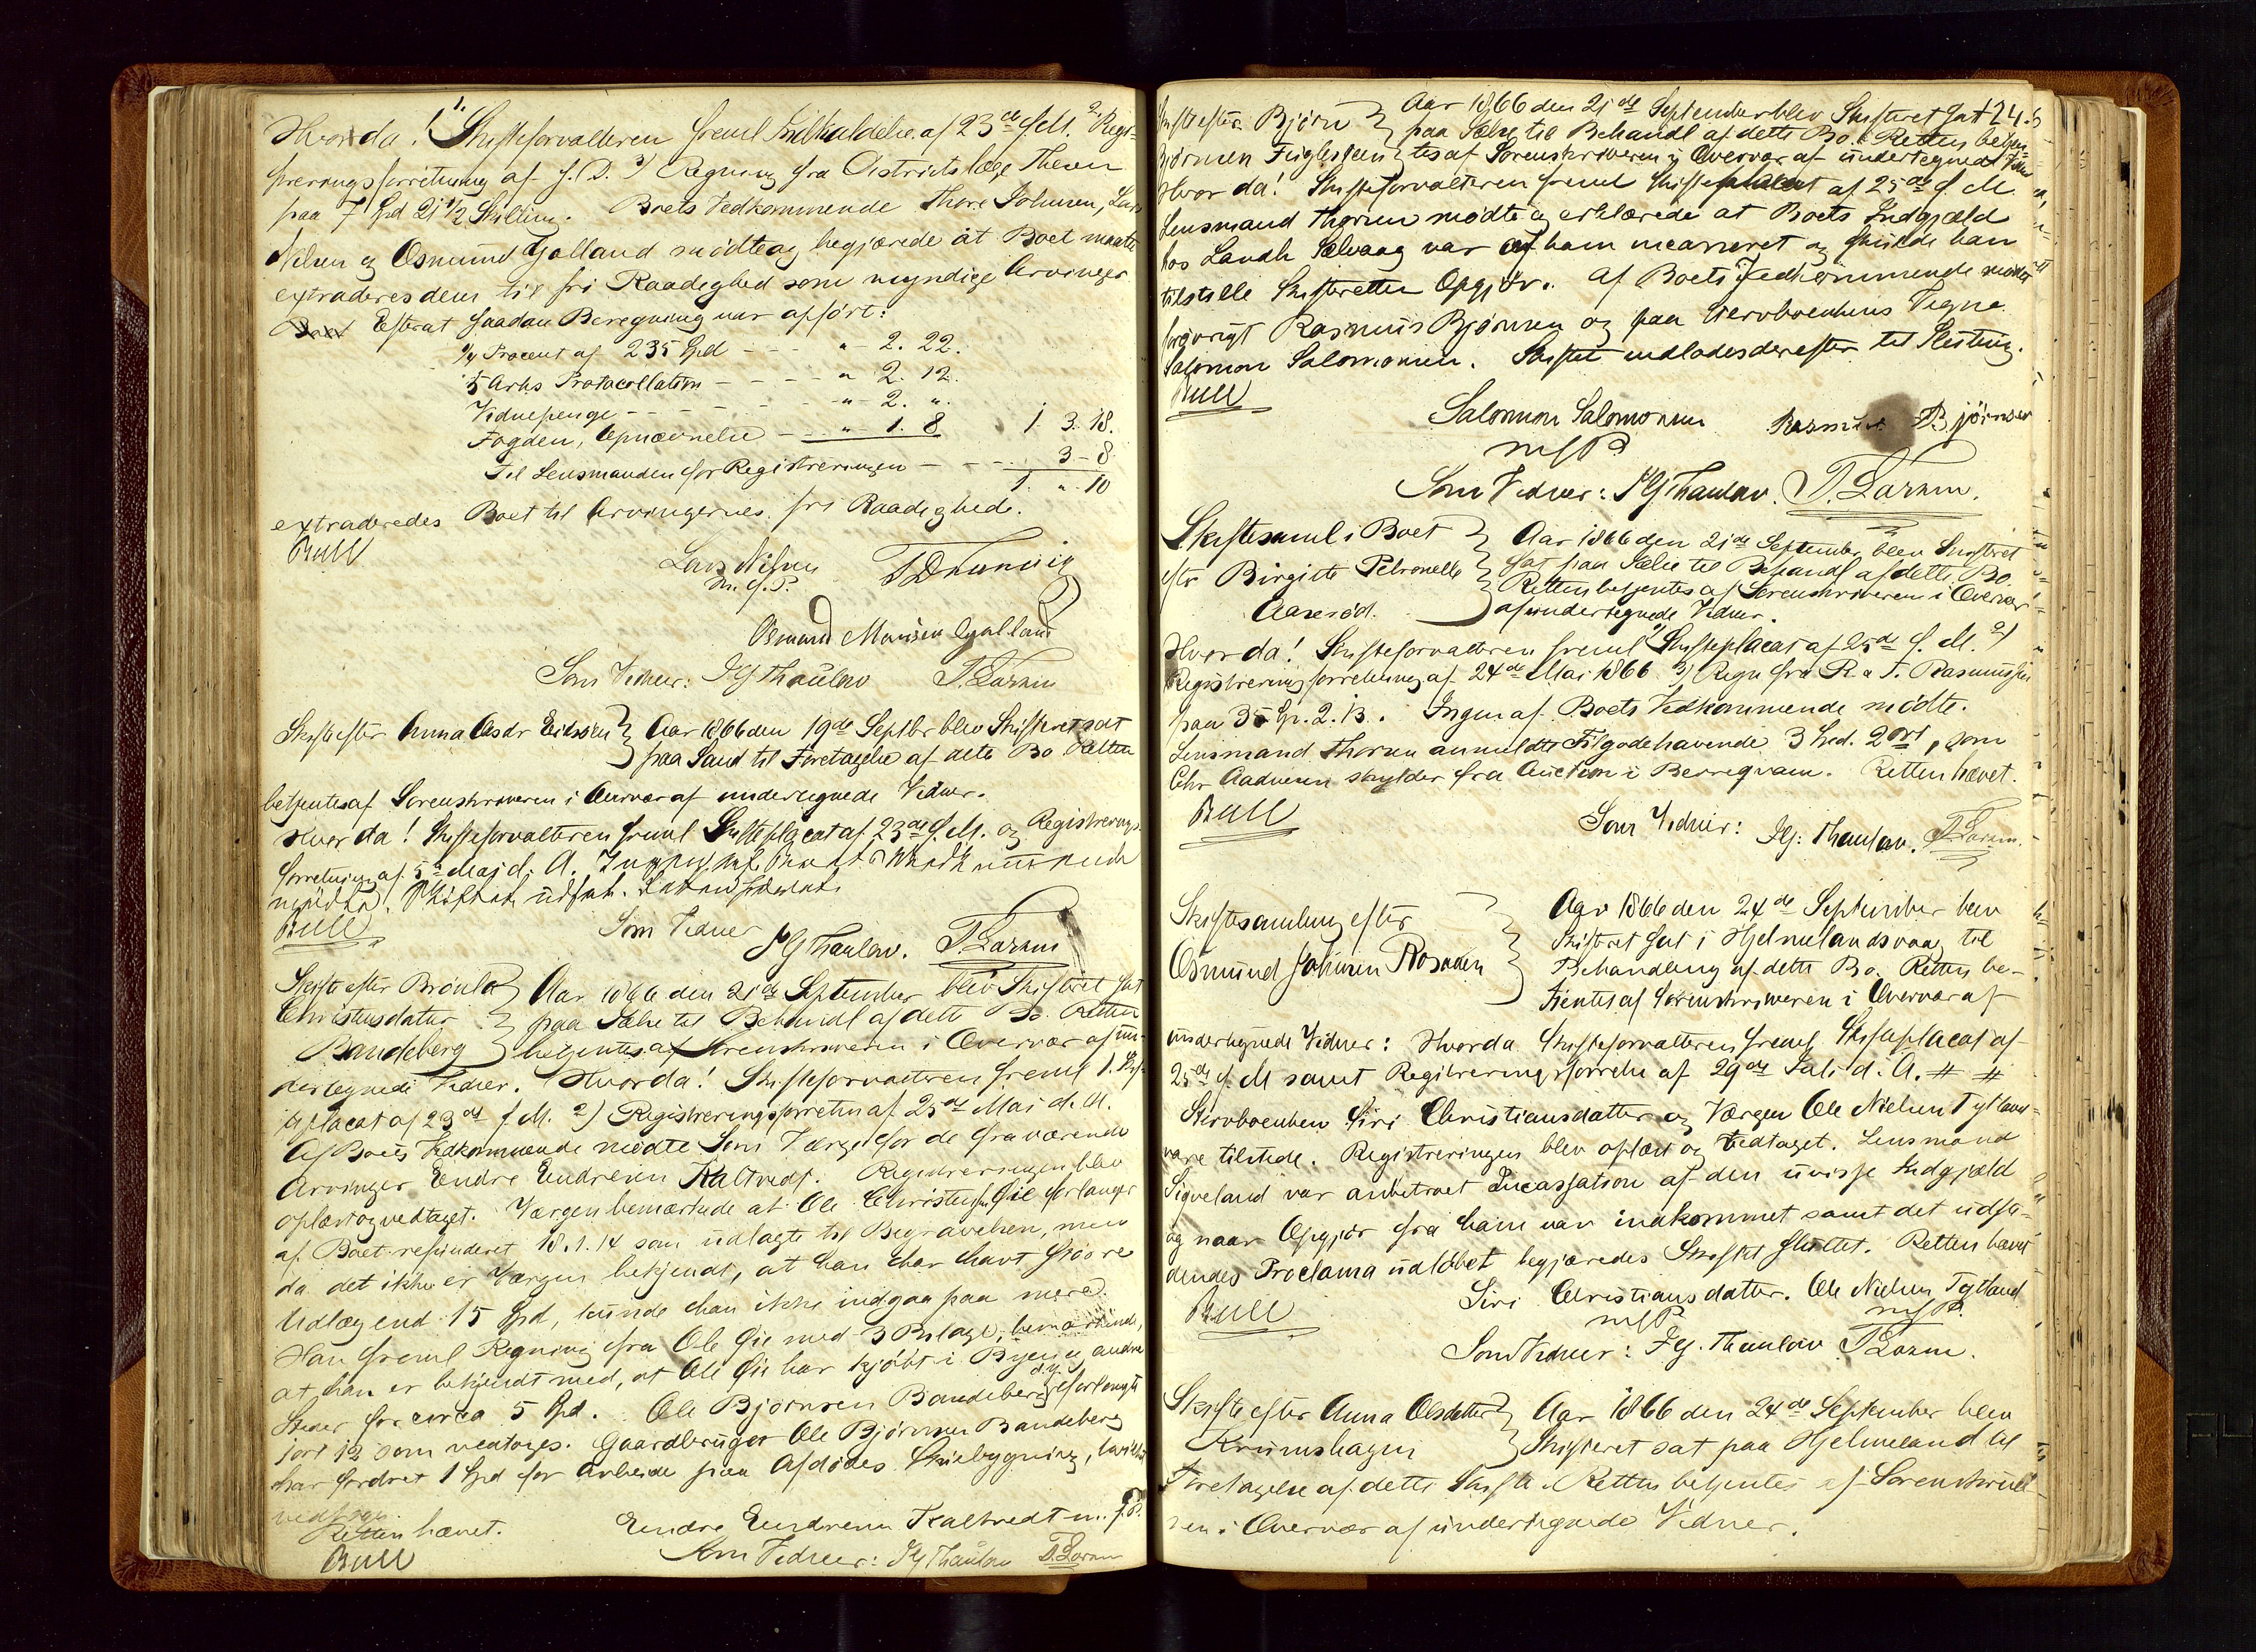 Hvorda! 1. Skifteforvalteren freml Indkaldelse af 23de f. M. 2, Regi-
streringsforretning af s. D. 3) Regning fra Districtslæge Thesen
paa 7 Spd 21 1/2 Skilling. Boets Vedkommende Thore Johnsen, Lars
Nilsen og Osmund Gjolland mødte og begjærede at Boet maatte
extraderes dem til fri Raadighed som myndige Arvinger
Efterat saadan Beregning var afført:
1/4 Procent af 235 Spd - - - " 2. 22.
5 Arks Protocollation - - - - " 2. 12.
Vidnepenge - - - - - - - " - 2. ".
Fogden, Opnævnelse - - " - 1. 8 1. 3. 18.
Til Lensmanden for Registreringen - - - 3 - 8
1. ". 10
extraderedes Boet til Arvingernes fri Raadighed.
Bull
Lars Nilsen
m. f. P.
Osmund Gjolland
Som Vidner: Thaulow T. Larsen
Skifte efter Anna Aar 1866 den 19de Septbr blev Skifteret sat
paa Sand til Foretagelse af dette Bo Retten
betjentes af Sorenskriveren i Overvær af undertegnede Vidner.
Hvorda! Skifteforvalteren freml Skifteplacat af 23de f. M. og Registrerings-
forretning af 5te Maj d. A. Ingen af Boets Vedkommende
mødte. Skiftet udsat. Retten hævet.
Bull
Som Vidner Thaulow. T. Larsen
Skifte efter Brønla Aar 1866 den 21de September blev Skifteret sat
Christensdatter paa Sælve til Behandl af dette Bo. Retten
Bandeberg betjentes af Sorenskriveren i Overvær af un-
dertegnede Vidner. Hvorda! Skifteforvalteren freml 1. Skif-
teplacat af 23de f. M. 2) Registreringsforretn af 25de Mai d. A.
Af Boets Vedkommende mødte Som Værge for de fraværende
Arvinger Endre Endresen Kaltvedt. Registreringen blev
oplæst og vedtaget. Værgen bemærkede at Ole Christensen Gie forlanger
af Boet refunderet 18. 1. 14 som udlagte til Begravelsen, men
da det ikke er Værgen bekjendt, at han har havt større
Udlæg end 15 Spd, kunde han ikke indgaa paa mere.
Han freml Regning fra Ole Gie med 3 Bilage, bemærkende,
at han er bekjendt med, at Ole Gie har kjøbt i Byen og andre
Steder for circa 5 Spd. Ole Bjørnsen Bandeberg forlangte
12 som vedtoges. Gaardbruger Ole Bjørnsen Bandeberg
har fordret 1 Spd for Arbeide paa Afdødes
Retten hævet. Endre Endresen Kaltvedt m. f. P.
Bull Som Vidner: Thaulow T. Larsen
246
Skifte efter Bjørn Aar 1866 den 21de September blev Skifteret sat
Bjørnsen Fuglesteen paa Sælve til Behandl af dette Bo. Retten betjen-
tes af Sorenskriveren i Overvær af undertegnede Vidner
Hvor da! Skifteforvalteren freml Skifteplacat af 25de f. M.
Lensmand Thorsen mødte og erklærede at Boets Indgjæld
hos Landh Sælvaag var af ham incasseret og skulde han
tilstille Skifteretten Opgjør. Af Boets Vedkommende mødte
forøvrigt Rasmus Bjørnsen og paa Stervboenkens Vegne
Salomon Salomonsen. Skiftet indlodes derefter til Slutning.
Bull
Salomon Salomonsen Rasmus Bjørnsen
m f P.
Som Vidner: Thaulow. T. Larsen.
Skiftesaml i Boet Aar 1866 den 21de September blev Skifteret
eftr Birgitte Petronelle sat paa Sælve til Behandl af dette Bo.
Aaserød. Retten betjentes af Sorenskriveren i Overvær
af undertegnede Vidner.
Hvor da! Skifteforvalteren freml 1) Skifteplacat af 25de f. M. 2)
Registreringsforretning af 24de Mai 1866 3) Regn fra R. & T. Rasmussen
paa 35 Sp. 2. 13. Ingen af Boets Vedkommende mødte.
Lensmand Thorsen anmeldte Tilgodehavende 3 Spd. 2 ort, som
Chr Aadnesen skylder fra Auction i Berregvam. Retten hævet.
Bull
Som Vidner: Thaulow. T. Larsen.
Skiftesamling efter Aar 1866 den 24de September blev
Osmund Johnsen Skifteret sat i Hjelmelandsvaag til
Behandling af dette Bo. Retten be-
tjentes af Sorenskriveren i Overvær af
undertegnede Vidner: Hvorda Skifteforvalteren freml Skifteplacat af
25de f. M samt Registreringsforretn af 29de Juli d. A. # #
Stervboenken Siri Christiansdatter og Værgen Ole Nielsen Tytland
vare tilstede. Registreringen blev oplæst og vedtaget. Lensmand
Sigveland var anbetroet Incassation af den uvisse Indgjæld
og naar Opgjør fra ham var indkommet samt det udstæ-
dendes Proclama udløbet begjæredes Skiftet sluttet. Retten hævet
Bull
Siri Christiansdatter. Ole Nielsen Tytland
m f P. m f P.
Som Vidner: Thaulow T Larsen.
Skifte efter Anna Olsdatter Aar 1866 den 24de September blev
Krumshagen Skifteret sat paa Hjelmeland til
Foretagelse af dette Skifte. Retten betjentes af Sorenskrive-
ren i Overvær af undertegnede Vidner.